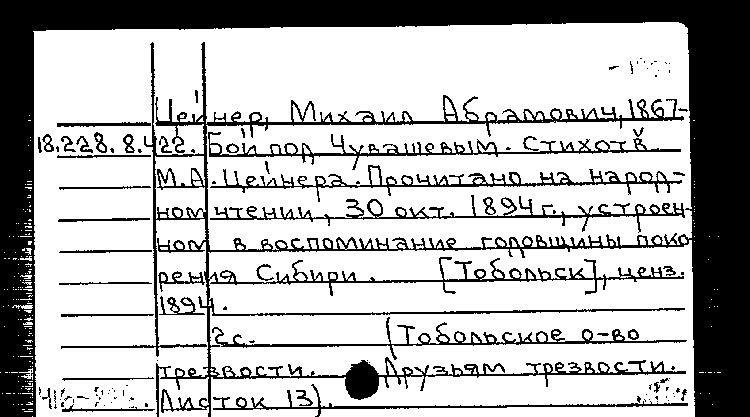 Цейнер, Михаил Абрамович, 1867-
18.228.8.422. Бой под Чувашевым. Стихотв
М.А. Цейнера. Прочитано на народ-
ном чтении, 30 окт. 1894 г., устроен-
ном в воспоминание годовщины поко
рения Сибири. [Тобольск], ценз.
1894.
2с. (Тобольское о-во
трезвости. Друзьям трезвости.
Листок 13).